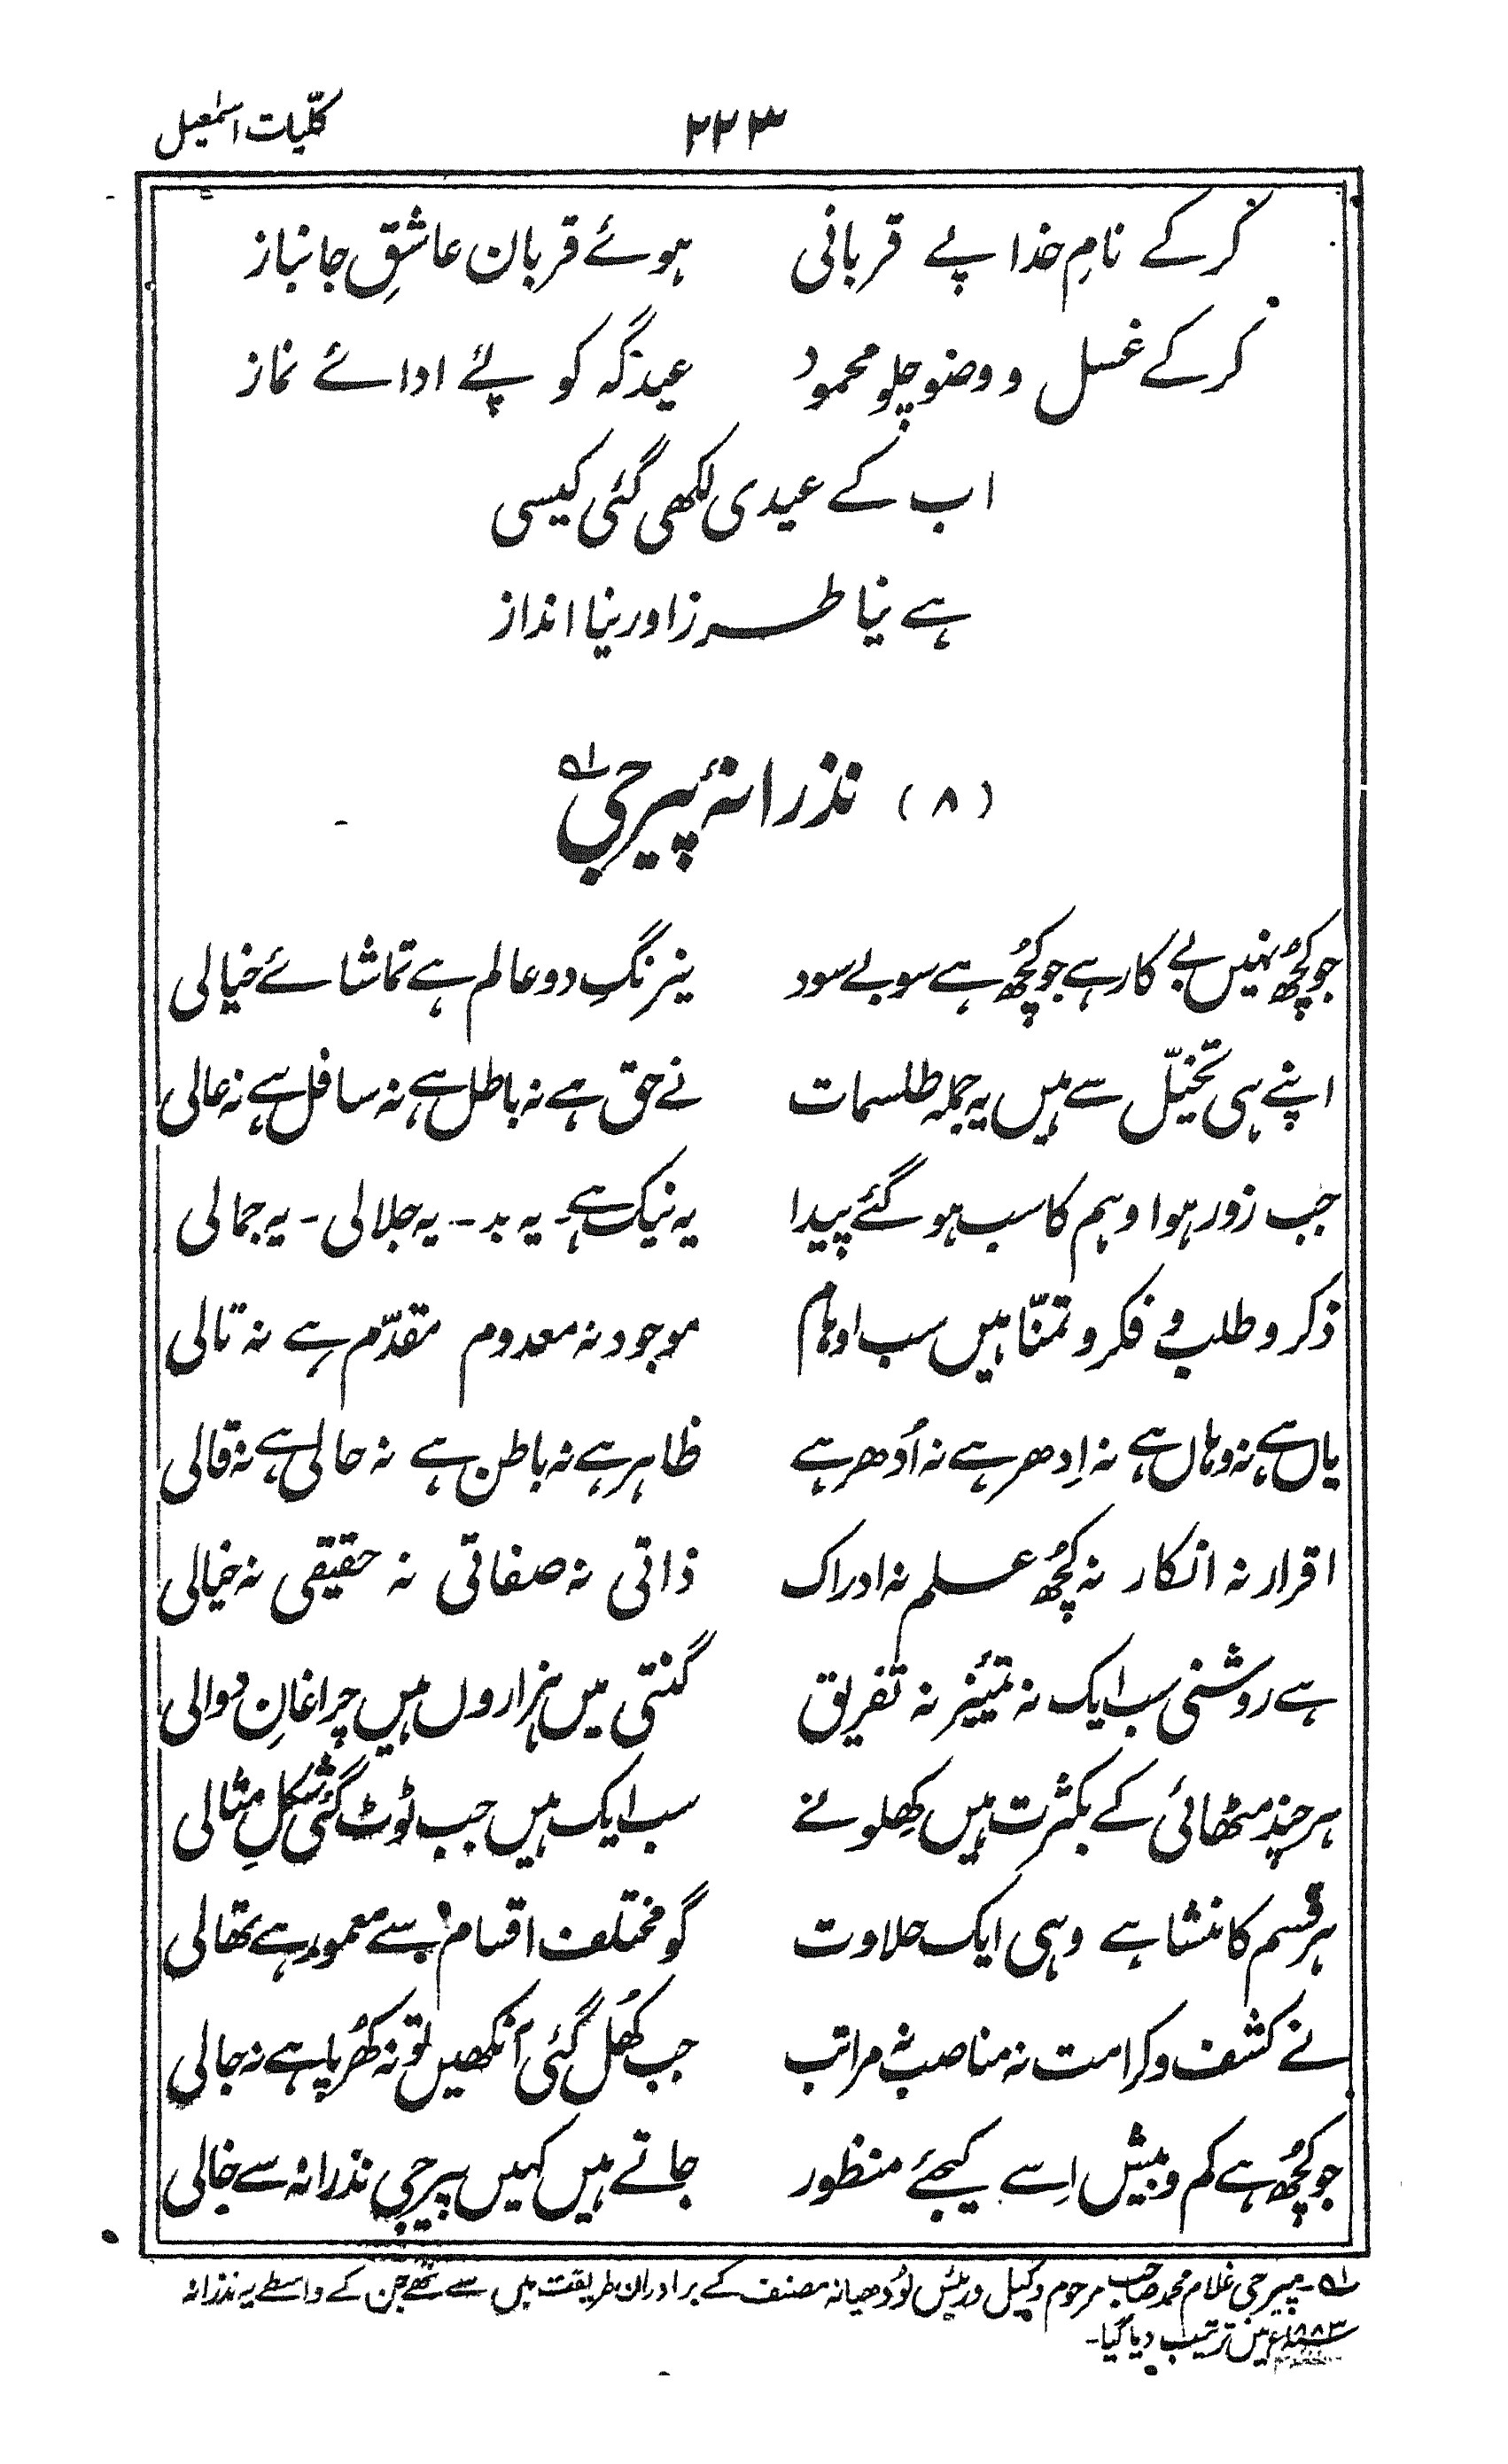 کلّیات اسمٰعیل ۲۲۳
کر کے نامِ خدا پے قربانی ہوئے قربان عاشقِ جانباز
کر کے غسل و وضو چلو محمود عیدگہ کو پئے ادائے نماز
اب کے عیدی لکھی گئی کیسی
ہے نیا طرز اور نیا انداز
(۸) نذرانۂ پیر جی ؎۱
جو کچُھ نہیں بے کار ہے جو کچُھ ہے سو بے سود نیرنگِ دو عالم ہے تماشائے خیالی
اپنے ہی تخیّل سے ہیں یہ جملہ طلسمات نے حق ہے نہ باطل ہے نہ سافل ہے نہ عالی
جب زور ہوا وہم کا سب ہو گئے پیدا یہ نیک ہے۔ یہ بد۔ یہ جلالی۔ یہ جمالی
ذکر و طلب و فکر و تمنّا ہیں سب اوہام موجود نہ معدوم مقدّم ہے نہ تالی
یاں ہے نہ وہاں ہے نہ اِدھر ہے نہ اُدھر ہے ظاہر ہے نہ باطن ہے نہ حالی ہے نہ قالی
اقرار نہ انکار نہ کچُھ علم نہ ادراک ذاتی نہ صفاتی نہ حقیقی نہ خیالی
ہے روشنی سب ایک نہ تمیُز نہ تفریق گنتی میں ہزاروں ہیں چراغانِ دوالی
ہر چند مٹھائی کے بکثرت ہیں کھِلونے سب ایک ہیں جب ٹوٹ گئی شکلِ مثالی
ہر قسم کا منشا ہے وہی ایک حلاوت گو مختلف اقسام سے معمور ہے تھالی
نے کشف و کرامت نہ مناصب نہ مراتب جب کھُل گئی آنکھیں تو نہ کھُرپا ہے نہ جالی
جو کچُھ ہے کم و بیش اِسے کیجئے منظور جاتے ہیں کہیں پیر جی نذرانہ سے خالی
؎۱۔ پیر جی غلام محمد صاحب مرحوم وکیل و رئیس لُودھیانہ مصنف کے برادران طریقت میں سے تھے جن کے واسطے یہ نذرانہ
۱۸۸۳ء میں ترتیب دیا گیا۔